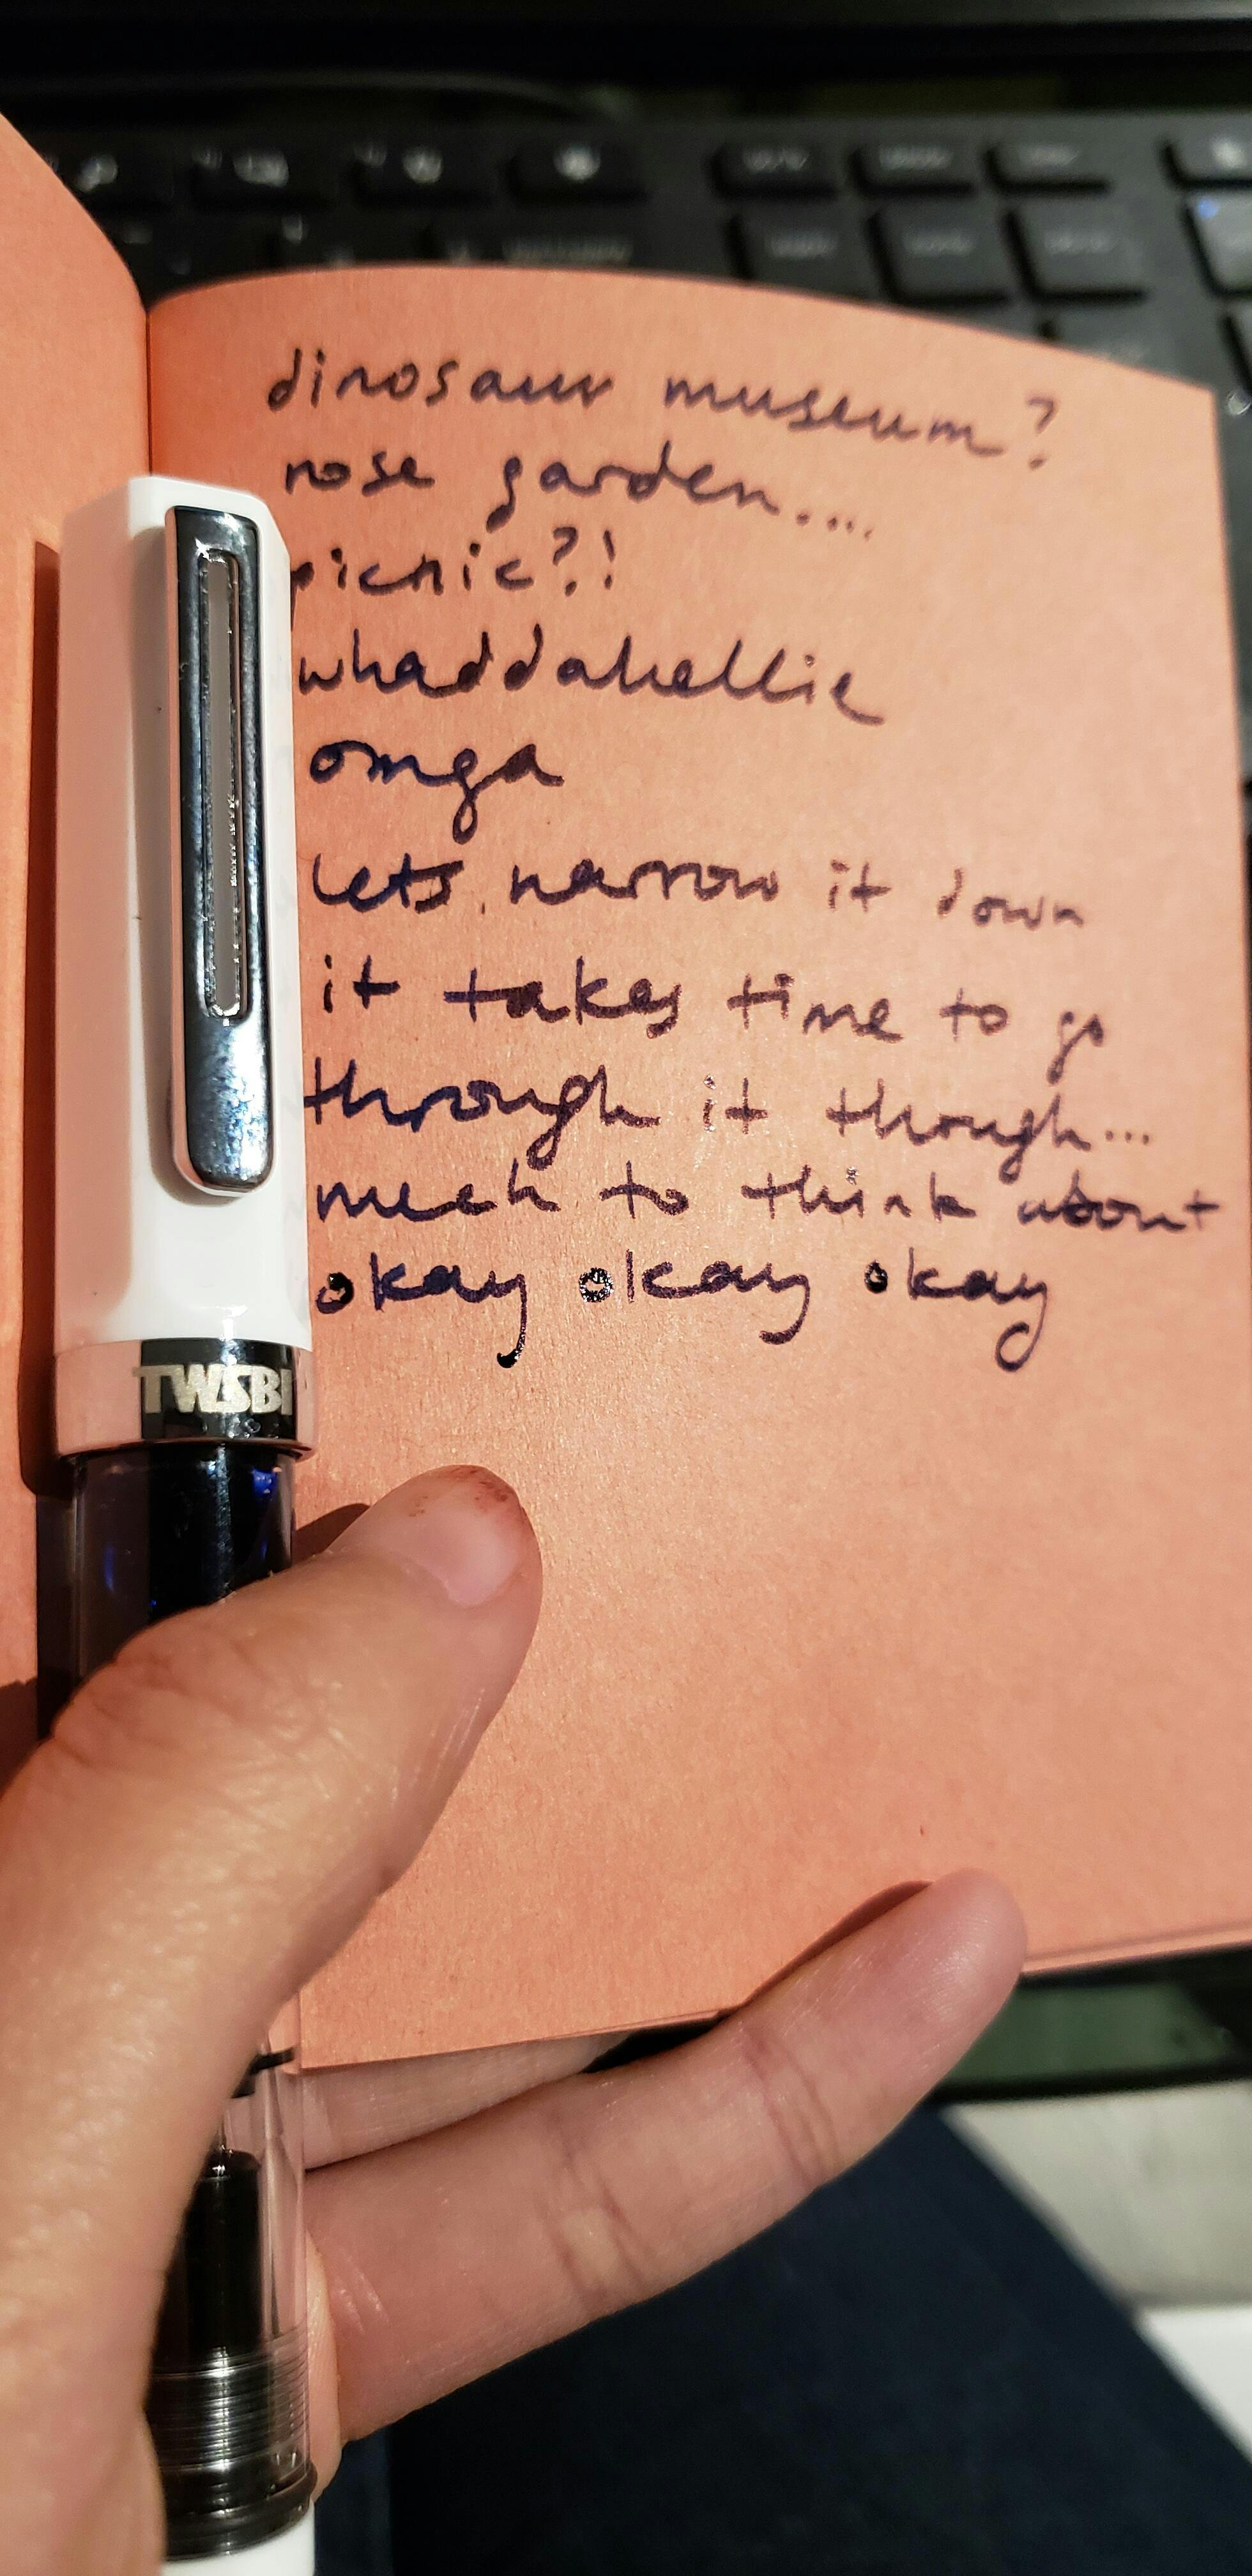 dinosaur museum?
rose garden....
picnic?!
whaddahellie
omga
lets narrow it down
it takes time to go
through it though...
much to think about
okay okay okay
TWSBI